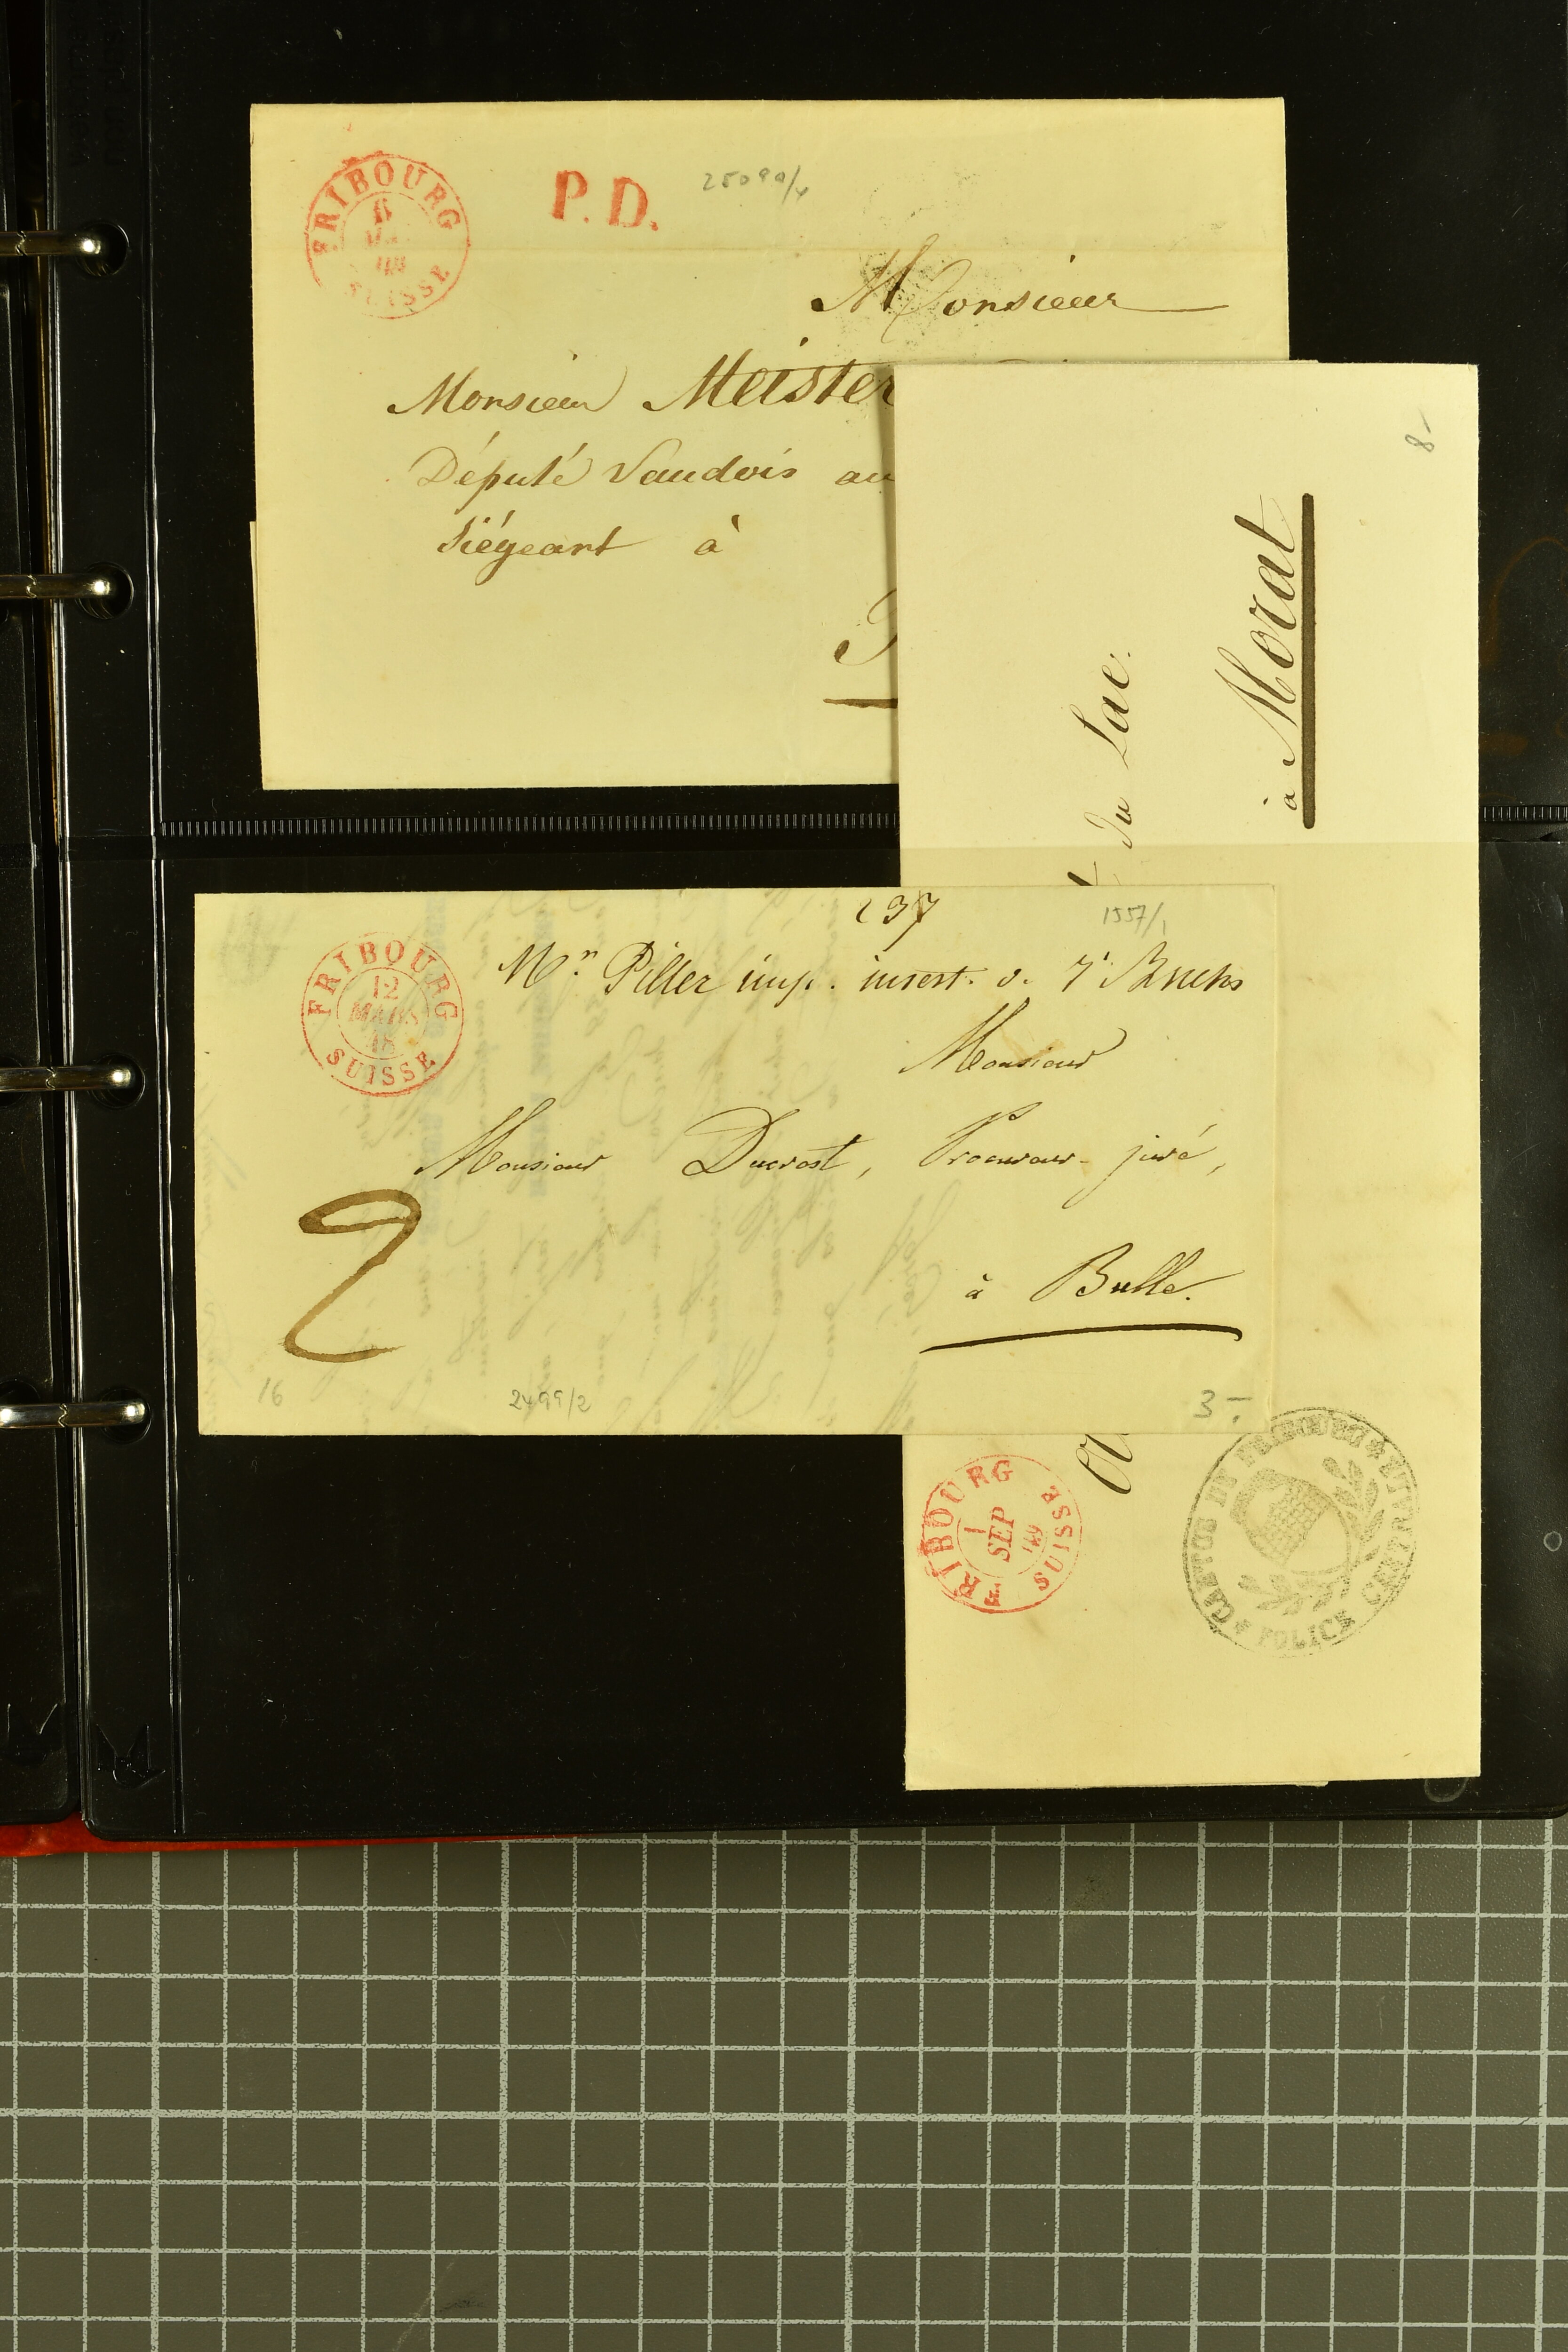 FRIBOURG
SUISSE
P.D.
25090/4
Monsieur
Monsieur Meister
Député Vaudois au
Siégeant à
8-
du Lac.
à Morat
237
1557/1
FRIBOURG
12
MARS
SUISSE
Mr. Piller imp. insert. o. 7 Bruchs
Monsieur
Monsieur Ducrest, Procureur-juré,
2
à Bulle.
16
2499/2
3-
FRIBOURG
1
SEP
149
SUISSE
CANTON DE FRIBOURG
POLICE CENTRALE